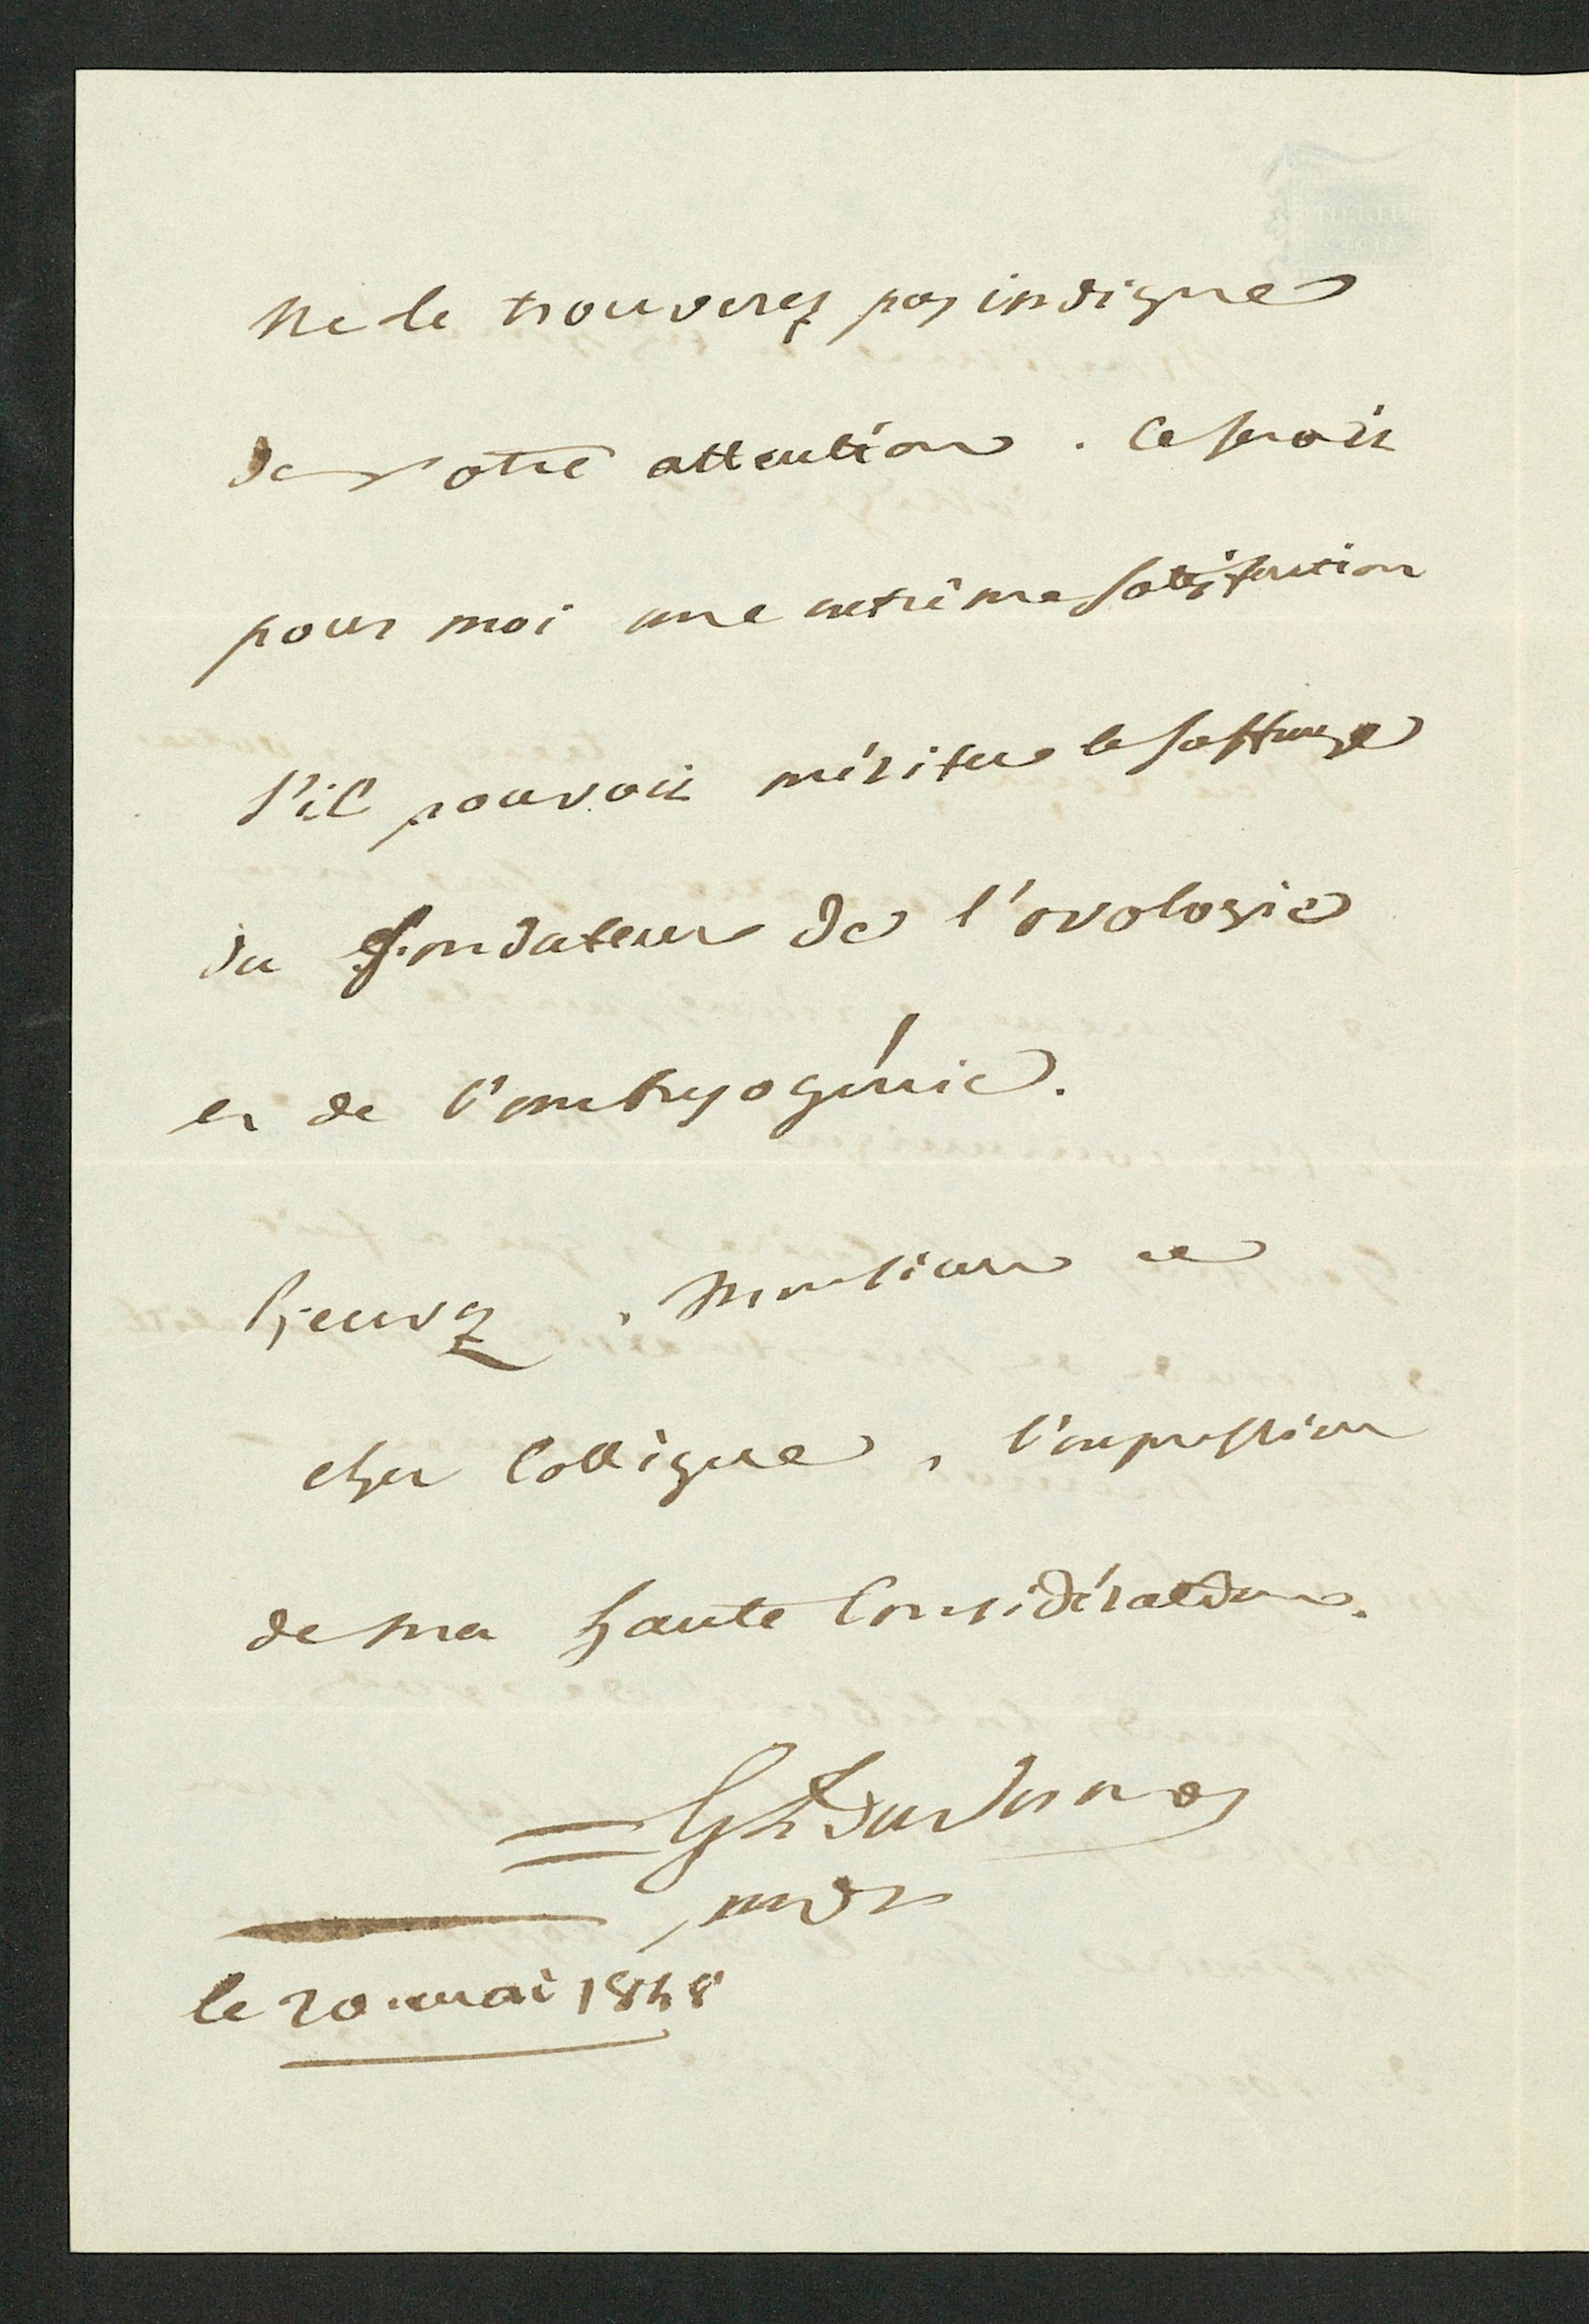 ne le trouverez pas indigne
de votre attention. Ce serait
pour moi une extrême satisfaction
s'il pouvait mériter le suffrage
du fondateur de l'ovologie
et de l'embryogénie.
Recevez, Monsieur et
cher Collègue, l'expression
de ma haute Considération.
le 20 mai 1848